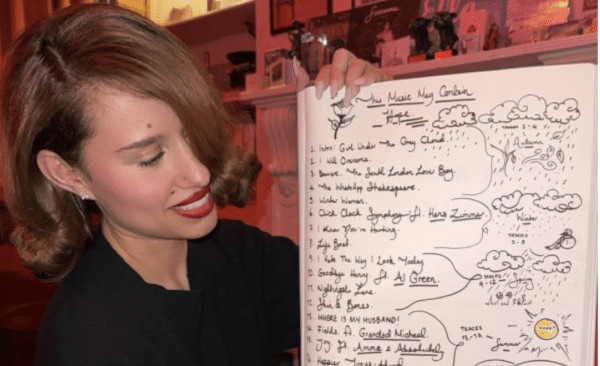 This Music May Contain
Hope.
1. Intro: Girl Under The Grey Cloud.
2. I Will Overcome.
3. Beware.. The South London Lover Boy.
4. The WhatsApp Shakespeare.
5. Winter Woman.
6. Click Clack Symphony. ft. Hans Zimmer.
7. I Know You're Hurting.
8. Life Boat.
9. I Hate The Way I Look Today.
10. Goodbye Henry. ft. Al Green.
11. Nightingale Lane.
12. Skin & Bones.
13. WHERE IS MY HUSBAND!
14. Fields. ft. Grandad Michael.
15. Joy. ft. Amma & Absolutely.
16. Happier Times Ahead.
TRACKS 1-4
Autumn
Winter
TRACKS
5-8
TRACKS
9-12
Spring
TRACKS
13-
Summer